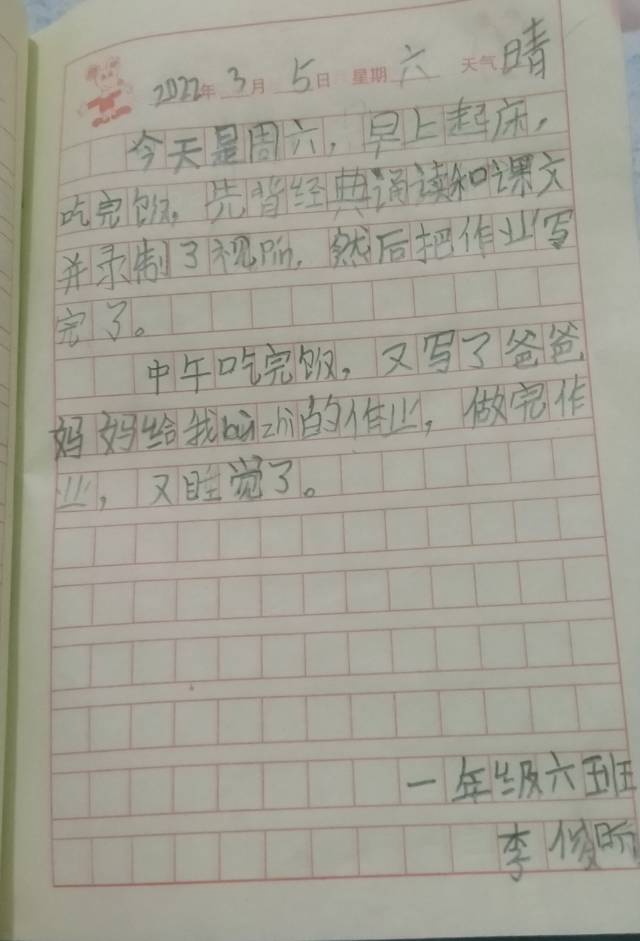 2022年 3月 5日 星期 六 天气 晴
今天是周六，早上起床，
吃完饭，先背经典诵读和课文
并录制了视所，然后把作业写
完了。
中午吃完饭，又写了爸爸
妈妈给我bùzhì的作业，做完作
业，又睡觉了。
一年级六班
李俊昕